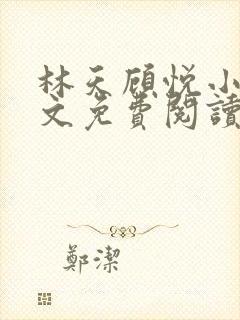 林天顾悦小
文免費閱讀
鄭潔